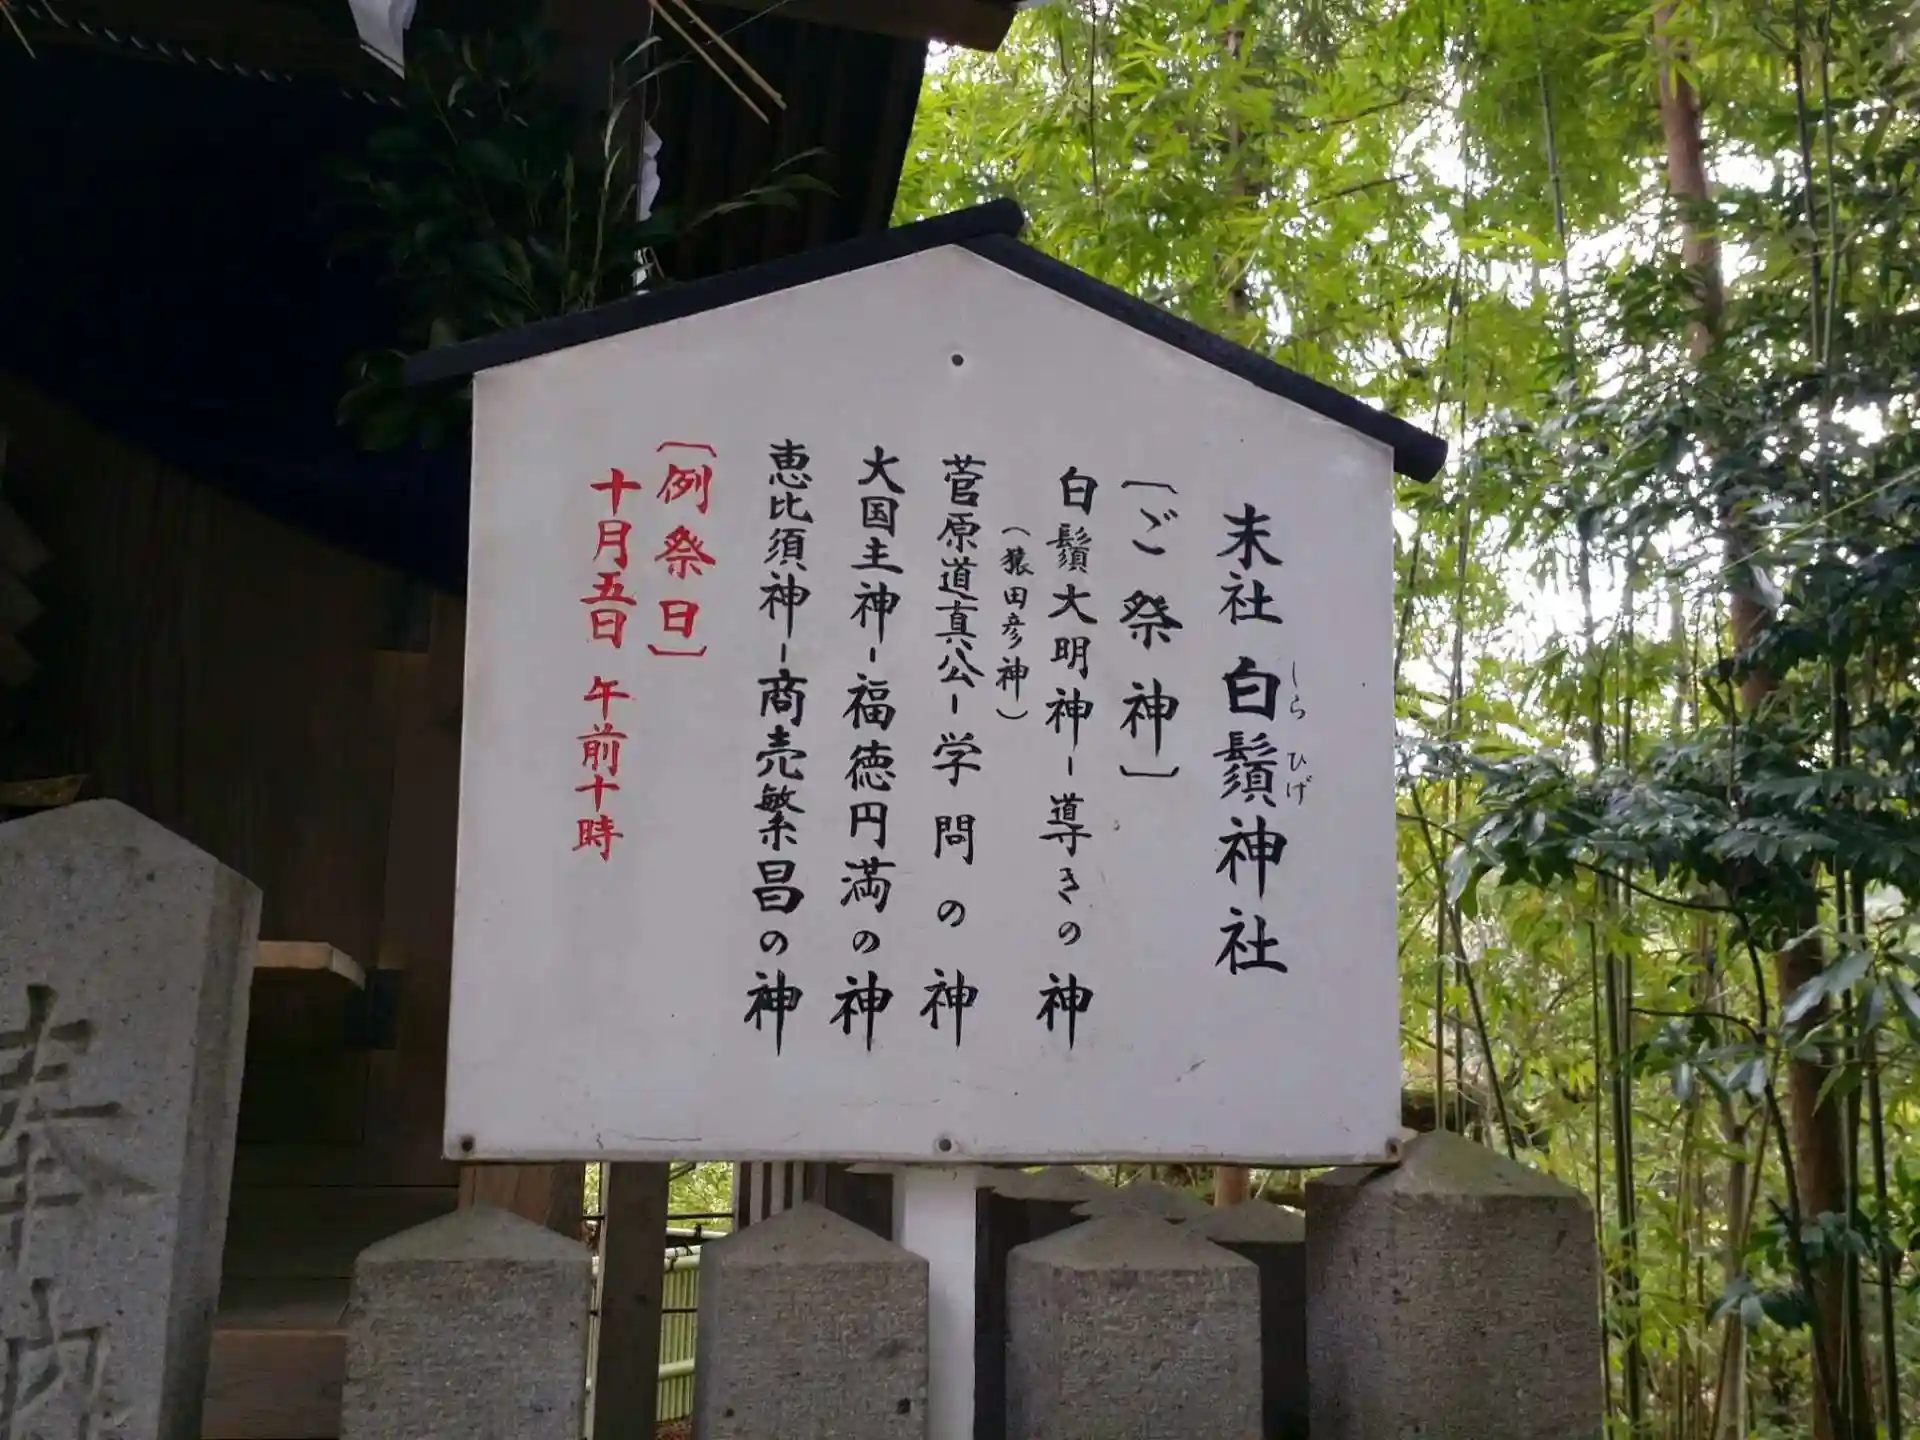 末社 白鬚神社
しら ひげ
〔ご祭神〕
白鬚大明神-導きの神
(猿田彦神)
菅原道真公-学問の神
大国主神-福徳円満の神
恵比須神-商売繁昌の神
〔例祭日〕
十月五日 午前十時
奉納